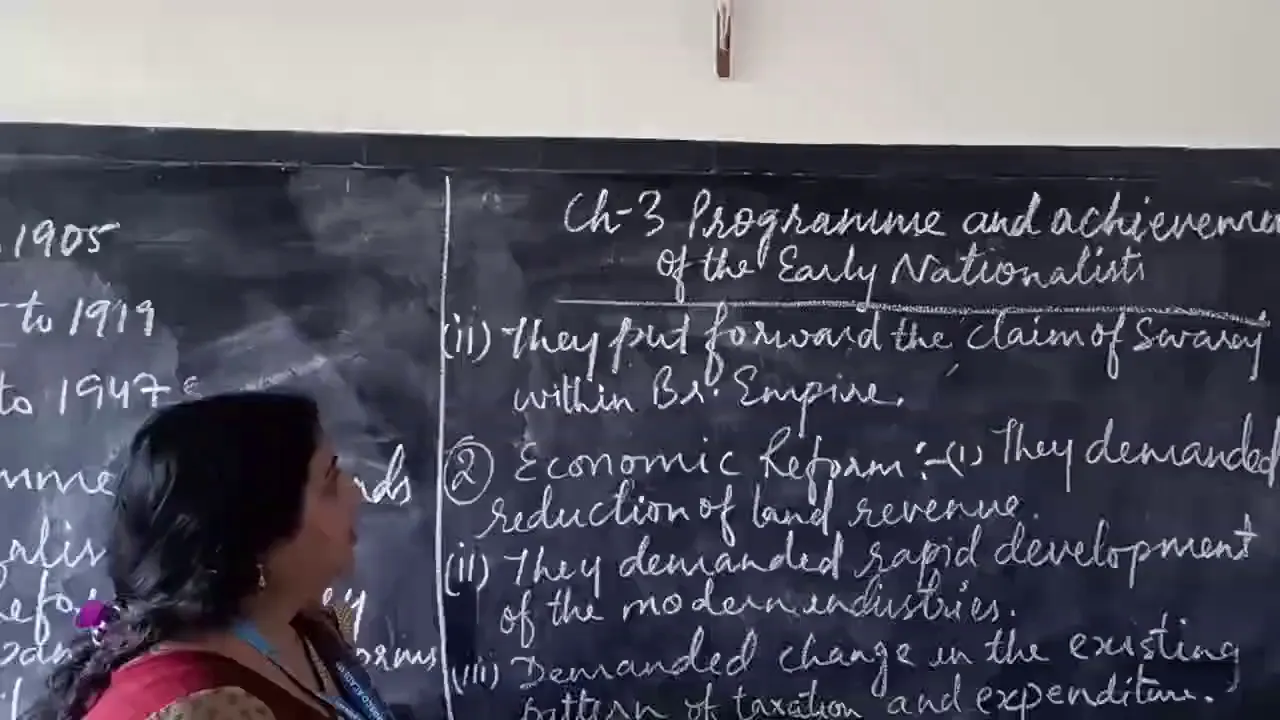 1905
to 1919
to 1947
Ch-3 Programme and
of the Early Nationalists
(ii) They put forward the claim of Swaraj
within Br. Empire.
② Economic Reform :- (i) They demanded
reduction of land revenue.
(ii) They demanded rapid development
of the modern industries.
(iii) Demanded change in the existing
pattern of taxation and expenditure.